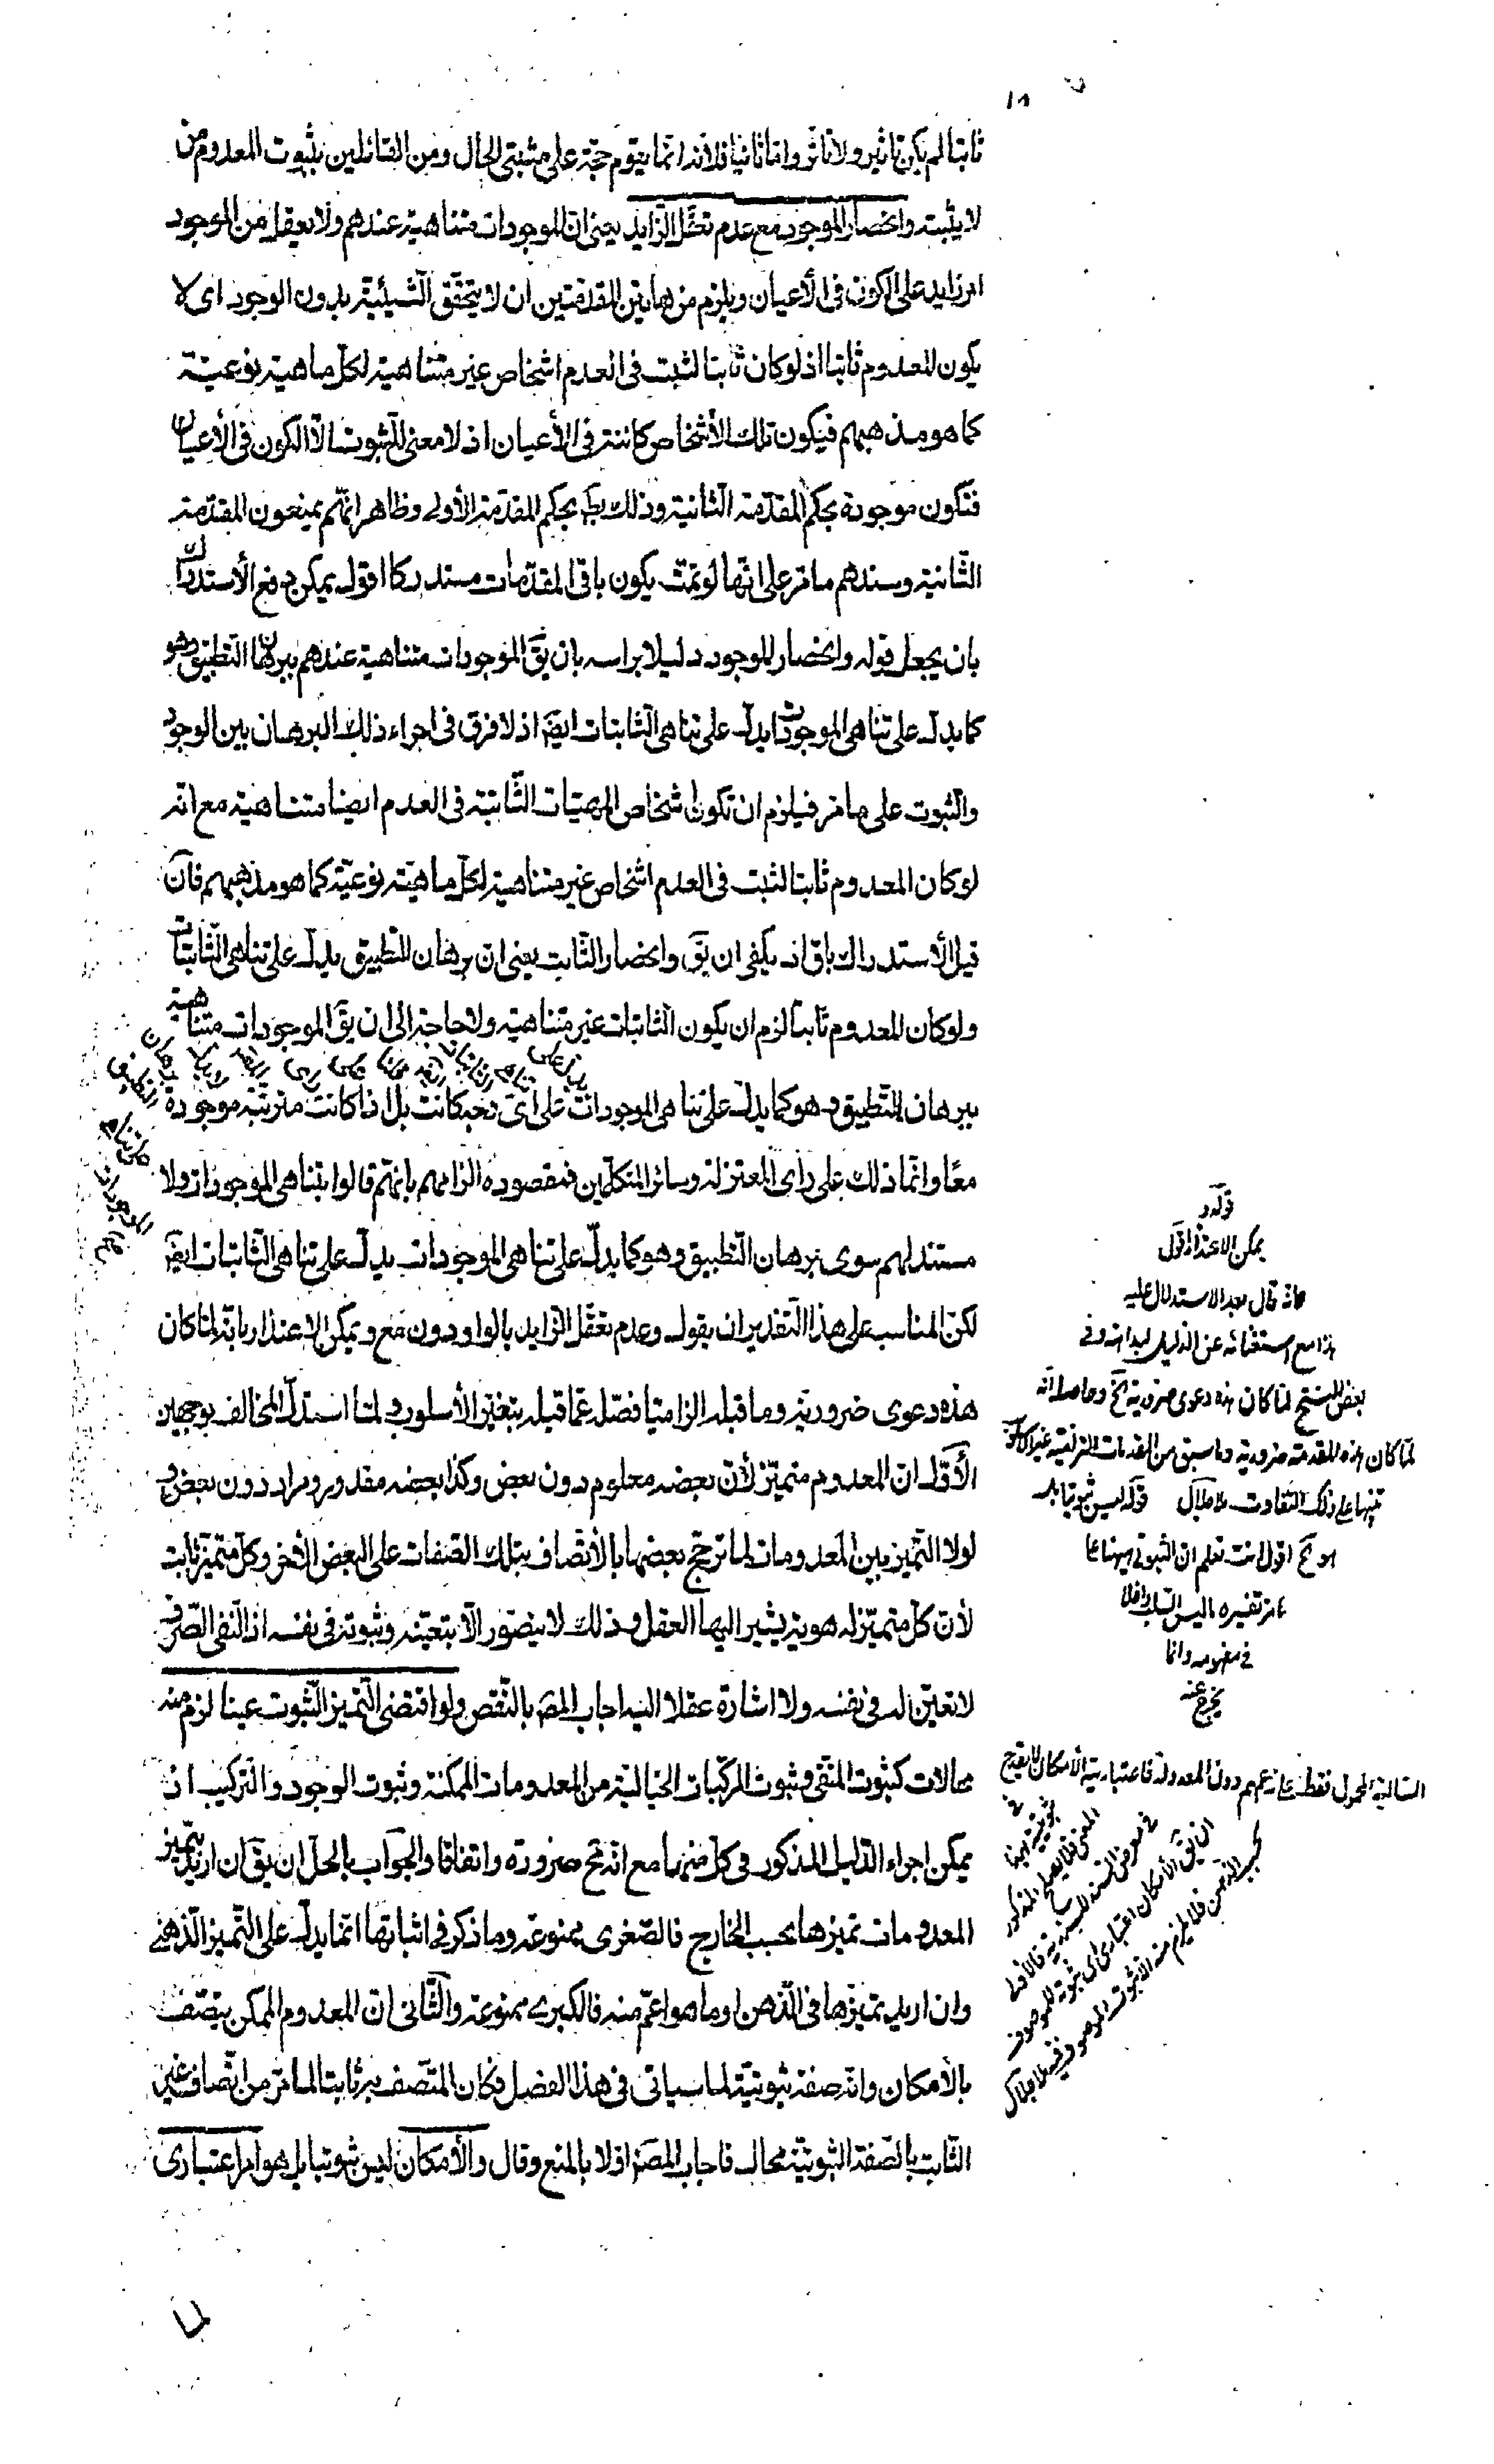 ١٨
ثابتا لم يكن تاثير ولا تاثر واما ثانيا فلانه انما يقوم حجة على مثبتي الحال ومن القائلين بثبوت المعدوم من
لا يثبته وانحصار الموجود مع عدم تعقل الزايد يعني ان الموجودات متناهية عندهم ولا يعقل من الموجود
امر زايد على الكون في الأعيان ويلزم من هاتين المقدمتين ان لا يتحقق الشيئية بدون الوجود اى لا
يكون المعدوم ثابتا اذ لو كان ثابتا لثبت في العدم اشخاص غير متناهية لكل ماهية نوعية
كما هو مذهبهم فيكون تلك الأشخاص كائنة في الأعيان اذ لا معنى للثبوت الا الكون في الأعيان
فتكون موجودة بحكم المقدمة الثانية وذلك بط بحكم المقدمة الأولى وظاهر انهم يمنعون المقدمة
الثانية وسندهم ما مر على انها لو تمت يكون باقي المقدمات مستدركا اقول يمكن دفع الأستدراك
بان يجعل قوله وانحصار الموجود دليلا براسه بان يق الموجودات متناهية عندهم ببرهان التطبيق وهو
كما يدل على تناهي الموجودات يدل على تناهي الثابتات ايضا اذ لا فرق في اجراء ذلك البرهان بين الوجود
والثبوت على ما مر فيلزم ان تكون اشخاص المهيات الثابتة في العدم ايضا متناهية مع انه
لو كان المعدوم ثابتا لثبت في العدم اشخاص غير متناهية لكل ماهية نوعية كما هو مذهبهم فان
قيل الأستدراك باق اذ يكفي ان يق وانحصار الثابت يعني ان برهان التطبيق يدل على تناهي الثابتات
ولو كان المعدوم ثابتا لزم ان يكون الثابتات غير متناهية ولا حاجة الى ان يق الموجودات متناهية
ببرهان التطبيق وهو كما يدل على تناهي الموجودات على اى نحو كانت بل اذا كانت مترتبة موجودة
معا وانما ذلك على رأى المعتزلة وسائر المتكلمين فمقصوده الزامهم بانهم قالوا بتناهي الموجودات ولا
مستند لهم سوى برهان التطبيق وهو كما يدل على تناهي الموجودات يدل على تناهي الثابتات ايضا
لكن المناسب على هذا التقدير ان يقول وعدم تعقل الزايد بالواو دون مع ويمكن الاعتذار بانه لما كان
هذه دعوى ضرورية وما قبله الزاميا فصل عما قبله بتغيير الأسلوب ولما استدل المخالف بوجهين
الأول ان المعدوم متميز لأن بعضه معلوم دون بعض وكذا بعضه مقدور ومراد دون بعض و
لولا التميز بين المعدومات لما ترجح بعضها بالأتصاف بتلك الصفات على البعض الأخر وكل متميز ثابت
لأن كل متميز له هوية يشير اليها العقل وذلك لا يتصور الا بتعينه وثبوته في نفسه اذ النفي الصرف
لا تعين له في نفسه ولا اشارة عقلا اليه اجاب المص بالنقض ولو اقتضى التميز الثبوت عينا لزم منه
محالات كثبوت المنفي وثبوت المركبات الخيالية من المعدومات الممكنة وثبوت الوجود والتركيب اذ
يمكن اجراء الدليل المذكور في كل منهما مع انه مح ضرورة واتفاقا والجواب بالحل ان يق ان اريد بتميز
المعدومات تميزها بحسب الخارج فالصغرى ممنوعة وما ذكر في اثباتها انما يدل على التميز الذهني
وان اريد تميزها في الذهن او ما هو اعم منه فالكبرى ممنوعة والثاني ان المعدوم الممكن يتصف
بالأمكان وانه صفة ثبوتية لما سياتي في هذا الفصل فكان المتصف به ثابتا لما مر من اتصاف غير
الثابت بالصفة الثبوتية محال فاجاب المص اولا بالمنع وقال والأمكان ليس ثبوتيا بل هو امر اعتبارى
قوله و
يمكن الاعتذار اقول
قال بعد الاستدلال عليه
هذا مع استغنائه عن الدليل لبداهته وفي
بعض النسخ لما كان هذه دعوى ضرورية الخ وحاصله انه
لما كان هذه المقدمة ضرورية وما سبق من المقدمات الزامية غير الأسلوب
تنبيها على ذلك التفاوت قوله ليس ثبوتيا بل
هو الخ اقول انت تعلم ان الثبوتي ههنا على
ما مر تفسيره ما ليس السلب داخلا
في مفهومه وانما
يخرج عنه
السالبة المحمول فقط على زعمهم دون المعدولة فاعتبارية الأمكان لا يقدح